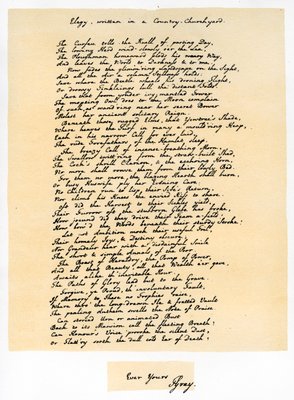 Elegy, written in a Country Churchyard.
The Curfew tolls the Knell of parting Day,
The lowing Herd wind slowly o'er the Lea,
The Plowman homeward plods his weary Way,
And leaves the World to Darkness & to me.
Now fades the glimmering Landscape on the Sight,
And all the Air a solemn Stillness holds;
Save where the Beetle wheels his droning Flight,
Or drowsy Tinklings lull the distant Folds.
Save that from yonder ivy-mantled Tower
The moping Owl does to the Moon complain
Of such, as wand'ring near her secret Bower
Molest her ancient solitary Reign.
Beneath those rugged Elms, that Yewtree's Shade,
Where heaves the Turf in many a mould'ring Heap,
Each in his narrow Cell for ever laid,
The rude Forefathers of the Hamlet sleep.
The breezy Call of incense-breathing Morn,
The Swallow twitt'ring from the straw-built Shed,
The Cock's shrill Clarion, or the ecchoing Horn,
No more shall rouse them from their lowly Bed.
For them no more the blazing Hearth shall burn
Or busy Housewife ply her Evening Care,
No Children run to lisp their Sire's Return,
Nor climb his Knees the envied Kiss to share.
Oft did the Harvest to their Sickle yield,
Their Furrow oft the stubborn Glebe has broke;
How jocund did they drive their Team a-field!
How bow'd the Woods beneath their sturdy Stroke!
Let not Ambition mock their useful Toil,
Their homely Joys, & Destiny obscure;
Nor Grandeur hear with a disdainful Smile
The short & simple Annals of the Poor.
The Boast of Heraldry, the Pomp of Power,
And all that Beauty, all that Wealth e'er gave,
Awaits alike th' inevitable Hour.
The Paths of Glory lead but to the Grave.
Forgive, ye Proud, th' involuntary Fault,
If Memory to These no Trophies raise,
Where thro' the long-drawn Ile, & fretted Vault
The pealing Anthem swells the Note of Praise
Can storied Urn or animated Bust
Back to its Mansion call the fleeting Breath?
Can Honour's Voice provoke the silent Dust,
Or Flatt'ry sooth the dull cold Ear of Death!
Ever Yours
TGray.